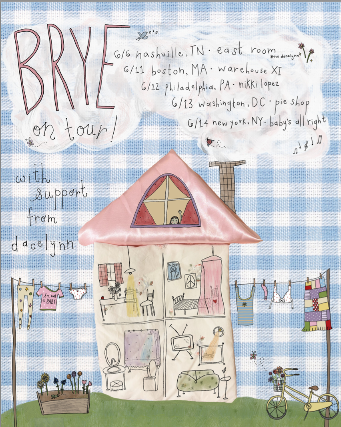 BRYE
on tour!
6/6 nashville, TN - east room
6/11 boston, MA - warehouse XI
6/12 philadelphia, PA - nikki lopez
6/13 washington, DC - pie shop
6/14 new york, NY - baby's all right
with
support
from
dacelynn